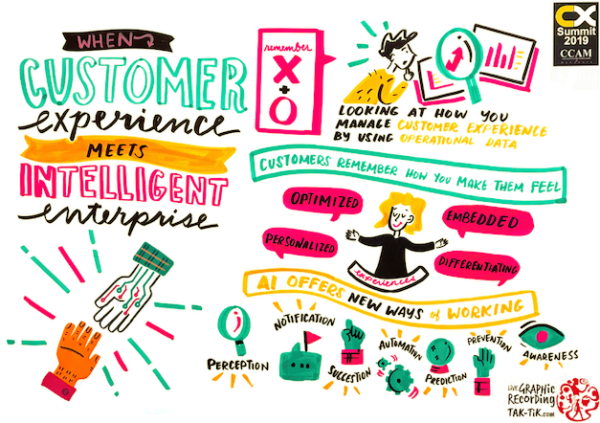 WHEN
CUSTOMER
experience
MEETS
INTELLIGENT
enterprise
remember
X
+
O
LOOKING AT HOW YOU
MANAGE CUSTOMER EXPERIENCE
BY USING OPERATIONAL DATA
CX
Summit
2019
CCAM
CUSTOMERS REMEMBER HOW YOU MAKE THEM FEEL
OPTIMIZED
EMBEDDED
PERSONALIZED
DIFFERENTIATING
experiences
AI OFFERS NEW WAYS of WORKING
PERCEPTION
NOTIFICATION
SUGGESTION
AUTOMATION
PREDICTION
PREVENTION
AWARENESS
LIVE GRAPHIC
RECORDING
TAK-TIK.com